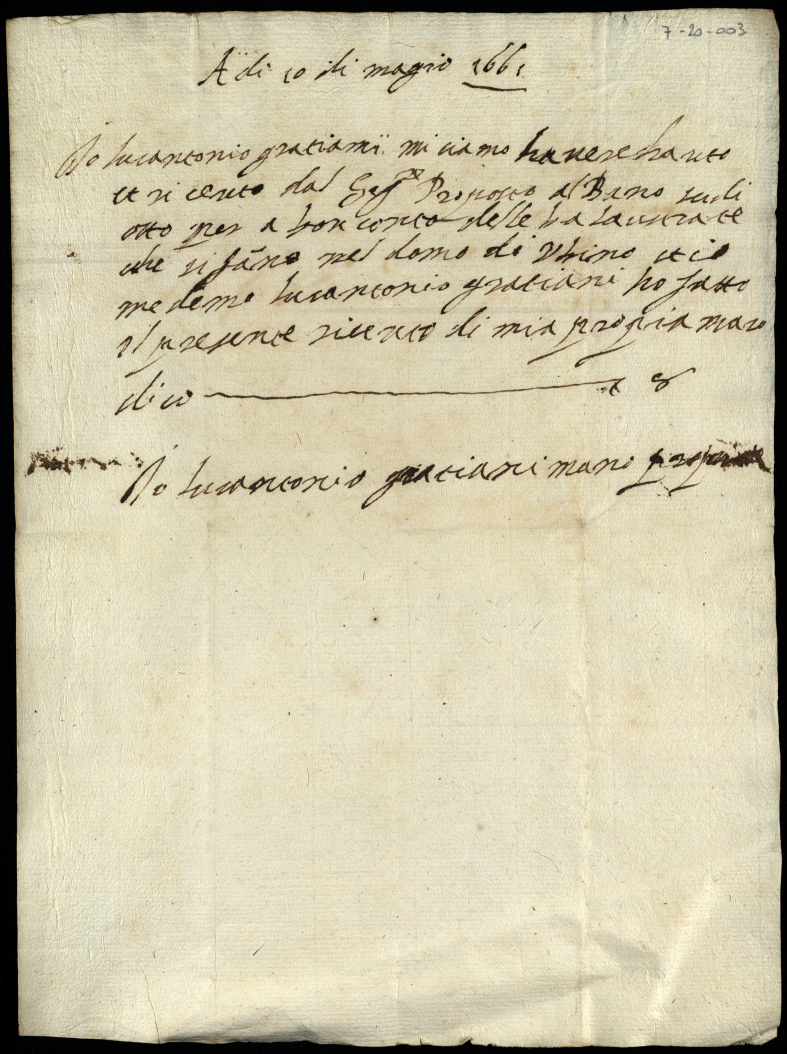 7-20-003
Adi 10 di magio 1661
Io lucantonio gratiani mi ciamo havere hauto
et riceuto dal Sig.re Proposto alBano scudi
otto per a bon conto delle balaustrate
che si fano nel domo di Vbino et io
medemo lucantonio gratiani ho fatto
il presente riceuto di mia propria mano
dico 8
Io lucantonio gratiani mano propria